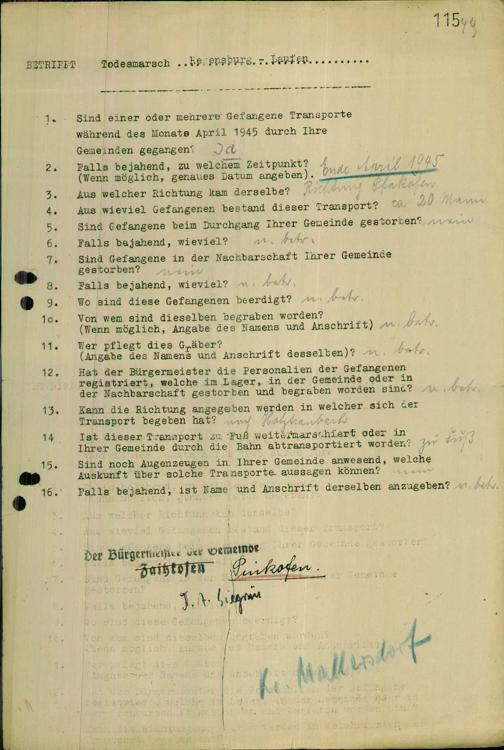 11549
BETRIFFT Todesmarsch ..Regensburg - Laufen..........
1. Sind einer oder mehrere Gefangene Transporte
während des Monats April 1945 durch Ihre
Gemeinden gegangen? Ja
2. Falls bejahend, zu welchem Zeitpunkt? Ende April 1945
(Wenn möglich, genaues Datum angeben).
3. Aus welcher Richtung kam derselbe? Richtung Pfakofen
4. Aus wieviel Gefangenen bestand dieser Transport? ca 20 Mann
5. Sind Gefangene beim Durchgang Ihrer Gemeinde gestorben? nein
6. Falls bajahend, wieviel? n. betr.
7. Sind Gefangene in der Nachbarschaft Ihrer Gemeinde
gestorben? nein
8. Falls bejahend, wieviel? n. betr.
9. Wo sind diese Gefangenen beerdigt? n. betr.
10. Von wem sind dieselben begraben worden?
(Wenn möglich, Angabe des Namens und Anschrift) n. betr.
11. Wer pflegt dies Gräber?
(Angabe des Namens und Anschrift desselben)? n. betr.
12. Hat der Bürgermeister die Personalien der Gefangenen
registriert, welche im Lager, in der Gemeinde oder in
der Nachbarschaft gestorben und begraben worden sind? n. betr.
13. Kann die Richtung angegeben werden in welcher sich der
Transport begeben hat? nach
14. Ist dieser Transport zu Fuß weitermarschiert oder in
Ihrer Gemeinde durch die Bahn abtransportiert worden? zu Fuß
15. Sind noch Augenzeugen in Ihrer Gemeinde anwesend, welche
Auskunft über solche Transporte aussagen können? nein
16. Falls bejahend, ist Name und Anschrift derselben anzugeben? n. betr.
Der Bürgermeister der Gemeinde
Zaitzkofen Pinkofen.
J. A.
Lr. Mallersdorf